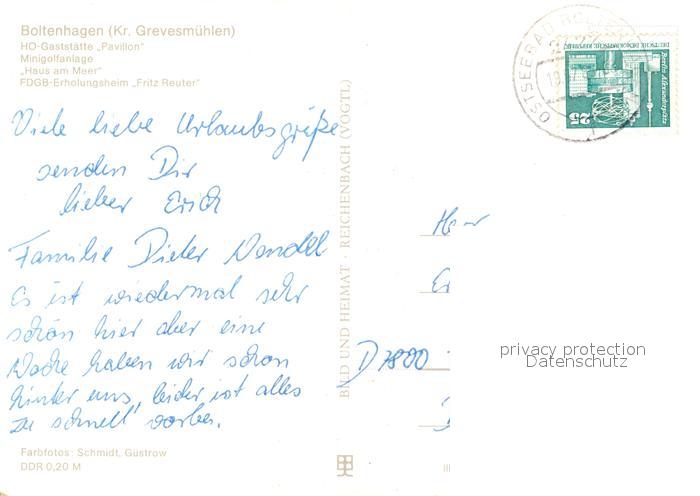 Boltenhagen (Kr. Grevesmühlen)
HO-Gaststätte „Pavillon"
Minigolfanlage
„Haus am Meer"
FDGB-Erholungsheim „Fritz Reuter"
Viele liebe Urlaubsgrüße
senden Dir
lieber Erich
Familie Dieter Wendel
Es ist wiedermal sehr
schön hier aber eine
Woche haben wir schon
hinter uns, leider ist alles
zu schnell vorbei.
Farbfotos: Schmidt, Güstrow
DDR 0,20 M
BILD UND HEIMAT · REICHENBACH (VOGTL)
OSTSEEBAD
Berlin, Alexanderplatz
DEUTSCHE DEMOKRATISCHE REPUBLIK
25
Her
Er
D 7800
privacy protection
Datenschutz
III